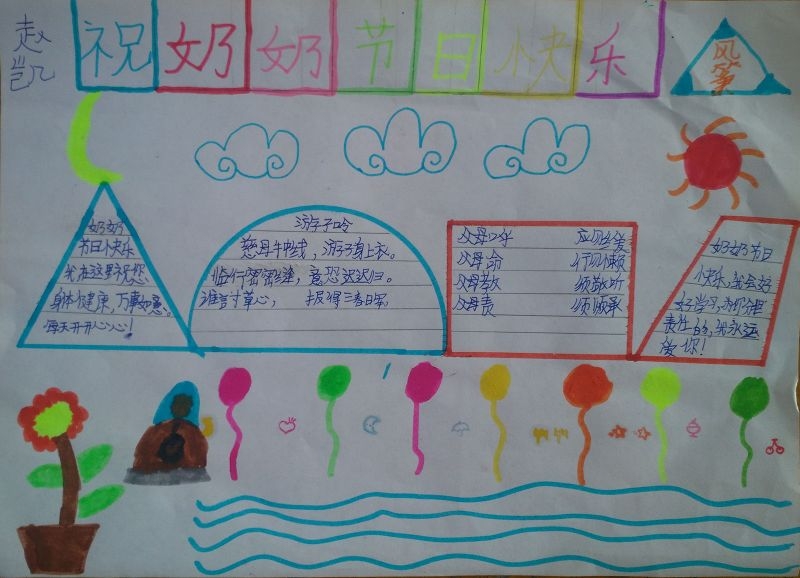 赵凯
祝奶奶节日快乐
风筝
奶奶
节日快乐
我在这里祝您
身体健康,万事如意。
每天开开心心!
游子吟
慈母手中线,游子身上衣。
临行密密缝,意恐迟迟归。
谁言寸草心, 报得三春晖。
父母呼 应勿缓
父母命 行勿懒
父母教 须敬听
父母责 须顺承
奶奶节日
快乐,我会好
好学习,为你分担
责任的,我永远
爱你!